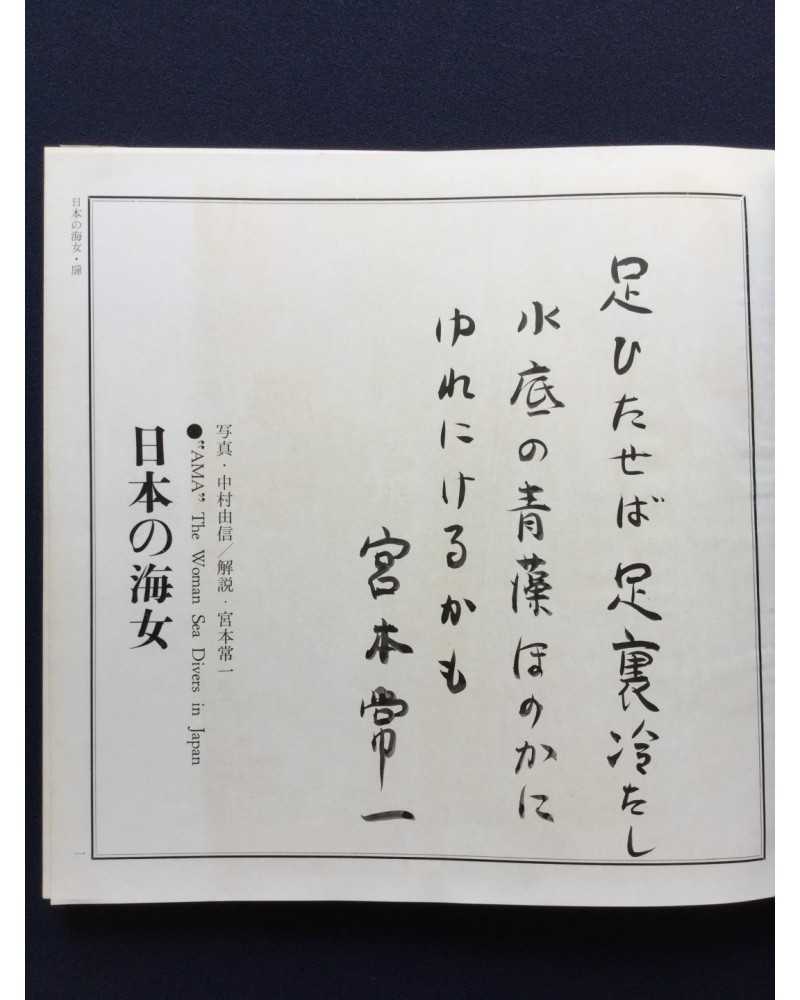 足ひたせば足裏冷たし
水底の青藻ほのかに
ゆれにけるかも
宮本常一
写真・中村由信／解説・宮本常一
●“AMA” The Woman Sea Divers in Japan
日本の海女
日本の海女・扉
一